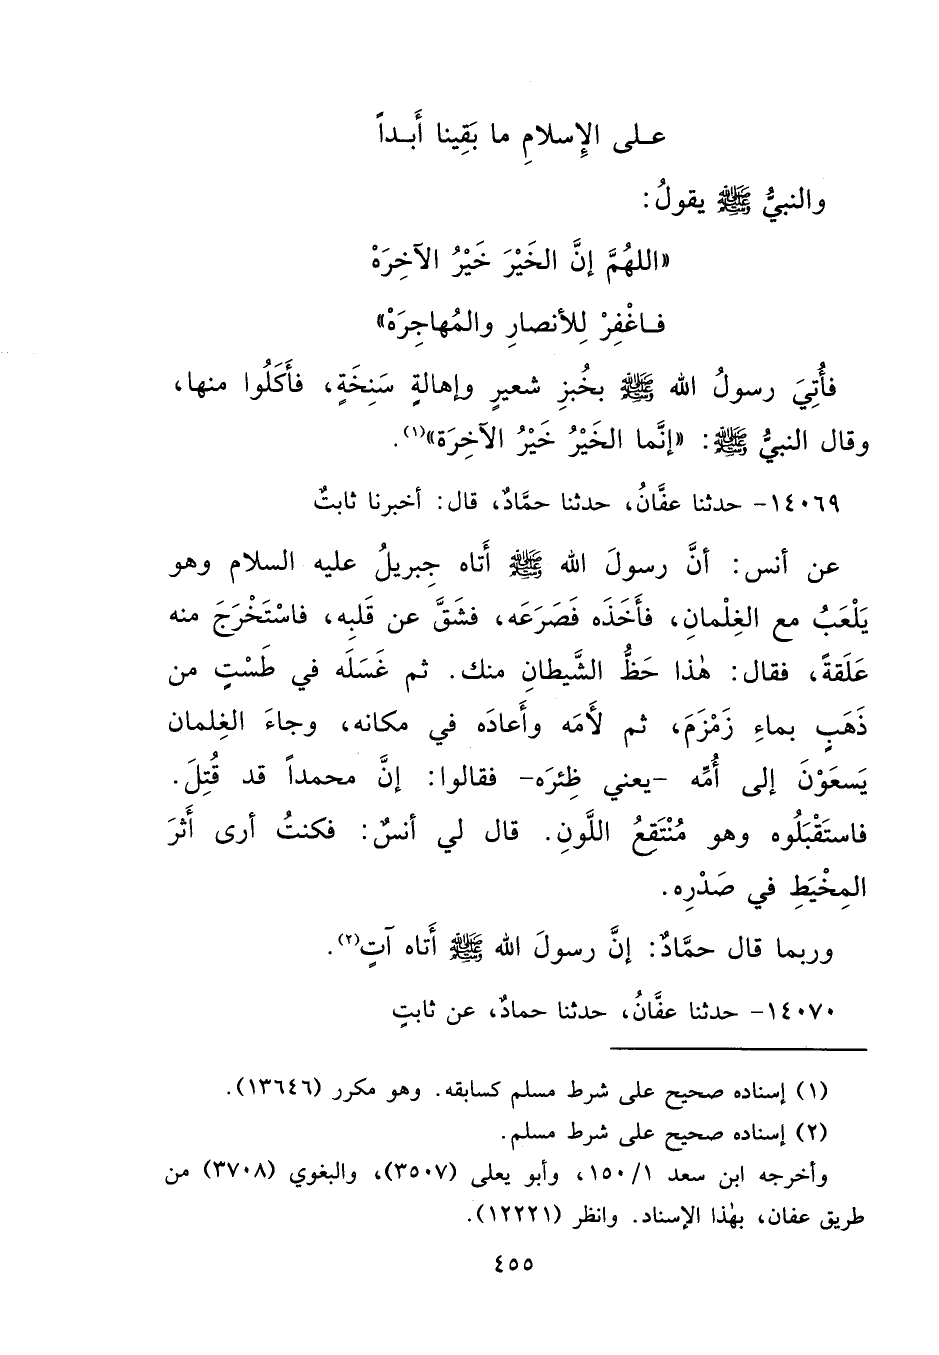 عـلـى الإِسلامِ ما بَقِينا أَبـداً
والنبيُّ ﷺ يقولُ:
«اللهُمَّ إنَّ الخَيْرَ خَيْرُ الآخِرَهْ
فـاغْفِرْ لِلأنصارِ والمُهاجِرَهْ»
فأُتِيَ رسولُ الله ﷺ بخُبزِ شعيرٍ وإهالةٍ سَنِخَةٍ، فأَكَلُوا منها،
وقال النبيُّ ﷺ: «إنَّما الخَيْرُ خَيْرُ الآخِرَة»(١).
١٤٠٦٩- حدثنا عفَّانُ، حدثنا حمَّادٌ، قال: أخبرنا ثابتٌ
عن أنس: أنَّ رسولَ الله ﷺ أَتاه جِبريلُ عليه السلام وهو
يَلْعَبُ مع الغِلْمانِ، فأَخَذَه فَصَرَعَه، فشَقَّ عن قَلبِه، فاسْتَخْرَجَ منه
عَلَقةً، فقال: هٰذا حَظُّ الشَّيطانِ منك. ثم غَسَلَه في طَسْتٍ من
ذَهَبٍ بماءِ زَمْزَمَ، ثم لأَمَه وأَعادَه في مكانه، وجاءَ الغِلمان
يَسعَوْنَ إلى أُمِّه -يعني ظِئرَه- فقالوا: إنَّ محمداً قد قُتِلَ.
فاستَقْبَلُوه وهو مُنْتَقِعُ اللَّونِ. قال لي أنسٌ: فكنتُ أرى أَثرَ
المِخْيَطِ في صَدْرِه.
وربما قال حمَّادٌ: إنَّ رسولَ الله ﷺ أَتاه آتٍ(٢).
١٤٠٧٠- حدثنا عفَّانُ، حدثنا حمادٌ، عن ثابتٍ
(١) إسناده صحيح على شرط مسلم كسابقه. وهو مكرر (١٣٦٤٦).
(٢) إسناده صحيح على شرط مسلم.
وأخرجه ابن سعد ١٥٠/١، وأبو يعلى (٣٥٠٧)، والبغوي (٣٧٠٨) من
طريق عفان، بهٰذا الإسناد. وانظر (١٢٢٢١).
٤٥٥